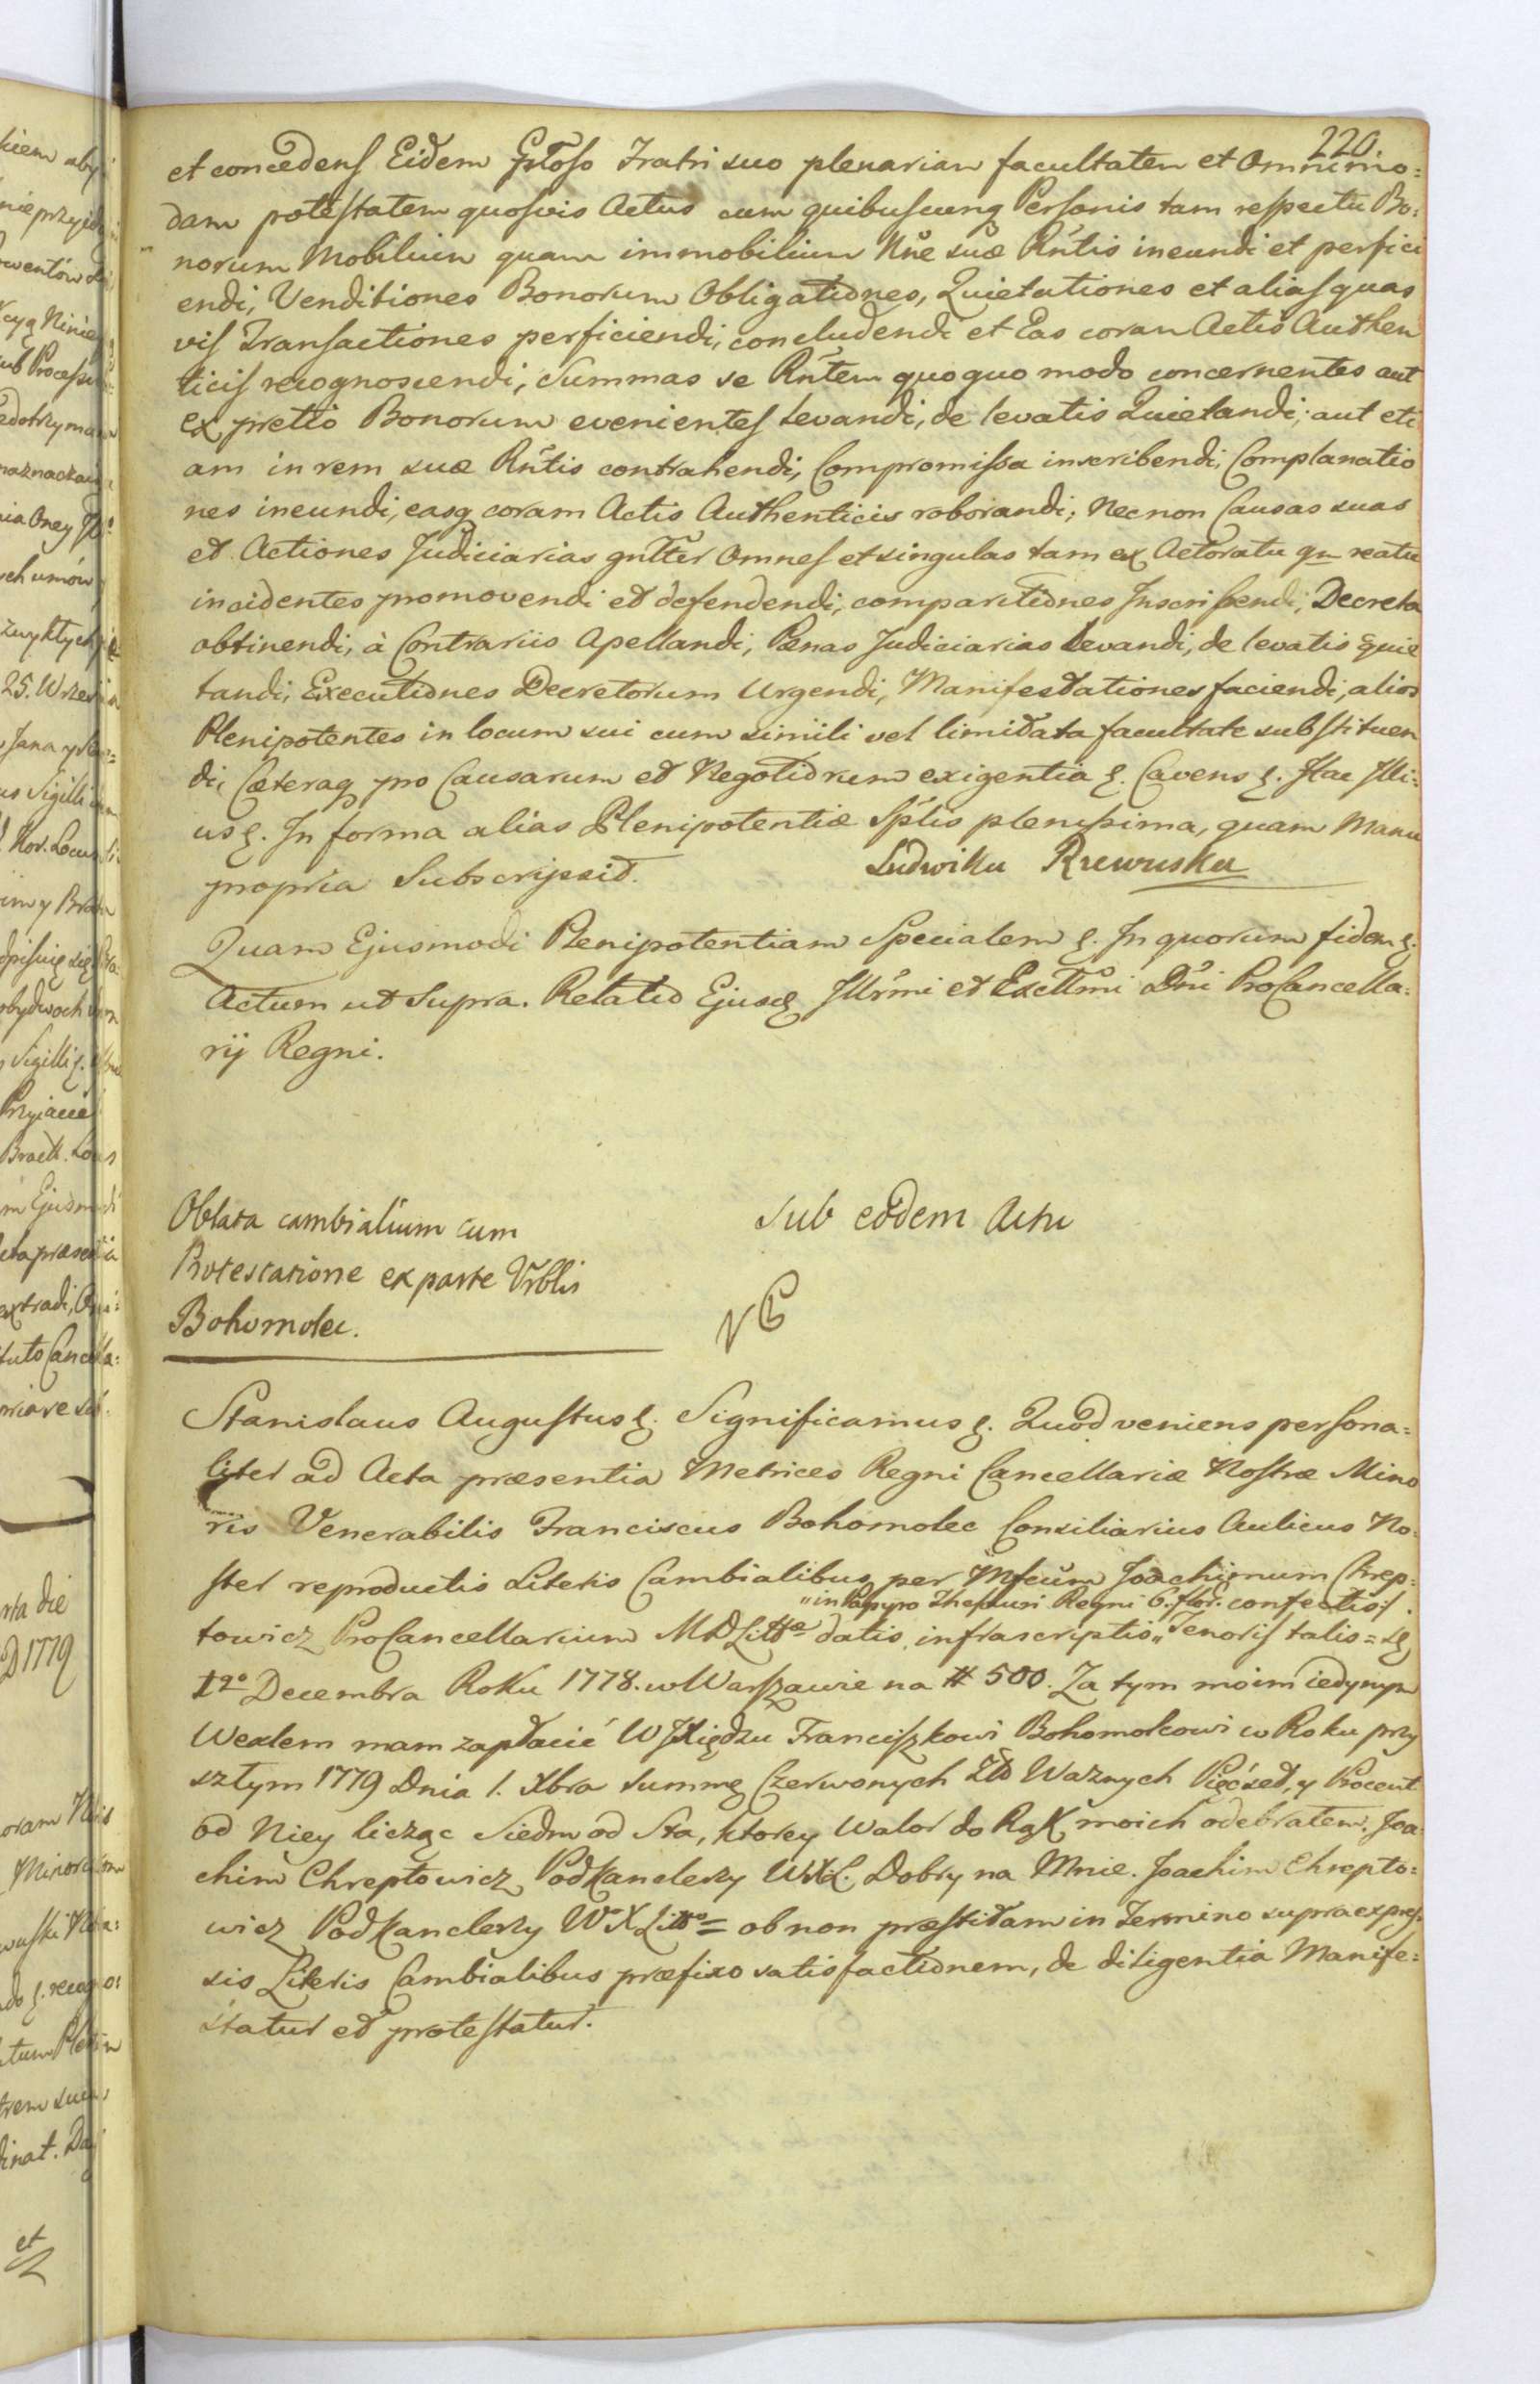 220.
et concedens Eidem Gnoso Fratri suo plenariam facultatem et Omnimo:
dam potestatem quosvis Actus cum quibuscunq Personis tam respectu Bo:
norum Mobilium quam immobilium Nne suæ Rntis ineundi et perfici
endi, Venditiones Bonorum Obligationes, Quietationes et alias quas
vis Transactiones perficiendi, concludendi et Eas coram Actis Authen
ticis recognoscendi, Summas se Rntem quoquo modo concernentes aut
ex pretio Bonorum evenientes Levandi, de levatis Quietandi; aut eti
am in rem suæ Rntis contrahendi, Compromissa inscribendi, Complanatio
nes ineundi, easq coram Actis Authenticis roborandi; Necnon Causas suas
et Actiones Judiciarias gnlter Omnes et singulas tam ex Actoratu qm reatu
incidentes promovendi et defendendi, comparitiones Inscribendi, Decreta
obtinendi, à Contrariis Apellandi, Pænas Judiciarias Levandi, de levatis quie
tandi, Executiones Decretorum Urgendi, Manifestationes faciendi, alios
Plenipotentes in locum sui cum simili vel limitata facultate substituen
di, Cæteraq pro Causarum et Negotiorum exigentia &. Cavens &. Hac Illi:
us &. In forma alias Plenipotentiæ Splis plenissima, quam Manu
propria Subscripsit. Ludwika Rzewuska
Quam Ejusmodi Plenipotentiam Specialem &. In quorum fidem &.
Actum ut Supra. Relatio Ejusq Illrmi et Excllmi Dni ProCancella:
rij Regni.
Oblata cambialium cum
Protestatione ex parte Vrblis
Bohomolec.
Sub eodem Actu
NB
Stanislaus Augustus &. Significamus &. Quod veniens persona:
liter ad Acta præsentia Metrices Regni Cancellariæ Nostræ Mino
ris Venerabilis Franciscus Bohomolec Consiliarius Aulicus No:
ster reproductis Literis Cambialibus per Mfcum Joachimum Chrep:
"in Papyro Thesauri Regni 6. flor. confectis:/.
towicz ProCancellarium MDLittæ datis, infrascriptis,, Tenoris talis =
1go Decembra Roku 1778. w Warszawie na # 500. Za tym moim iedynym
Wexlem mam zapłacić WJXiędzu Franciszkowi Bohomolcowi w Roku przy
szłym 1779 Dnia 1. Xbra Summę Czerwonych Zło Waznych Pięćset, y Procent
od Niey licząc Siedm od Sta, ktorey Walor do Rąk moich odebrałem. Joa
chim Chreptowicz Podkanclerzy WXL. Dobry na Mnie. Joachim Chrepto:
wicz Podkanclerzy WoXLitto = ob non præstitam in Termino supraexpres
sis Literis Cambialibus præfixo satisfactionem, de diligentia Manife:
statur et protestatur.